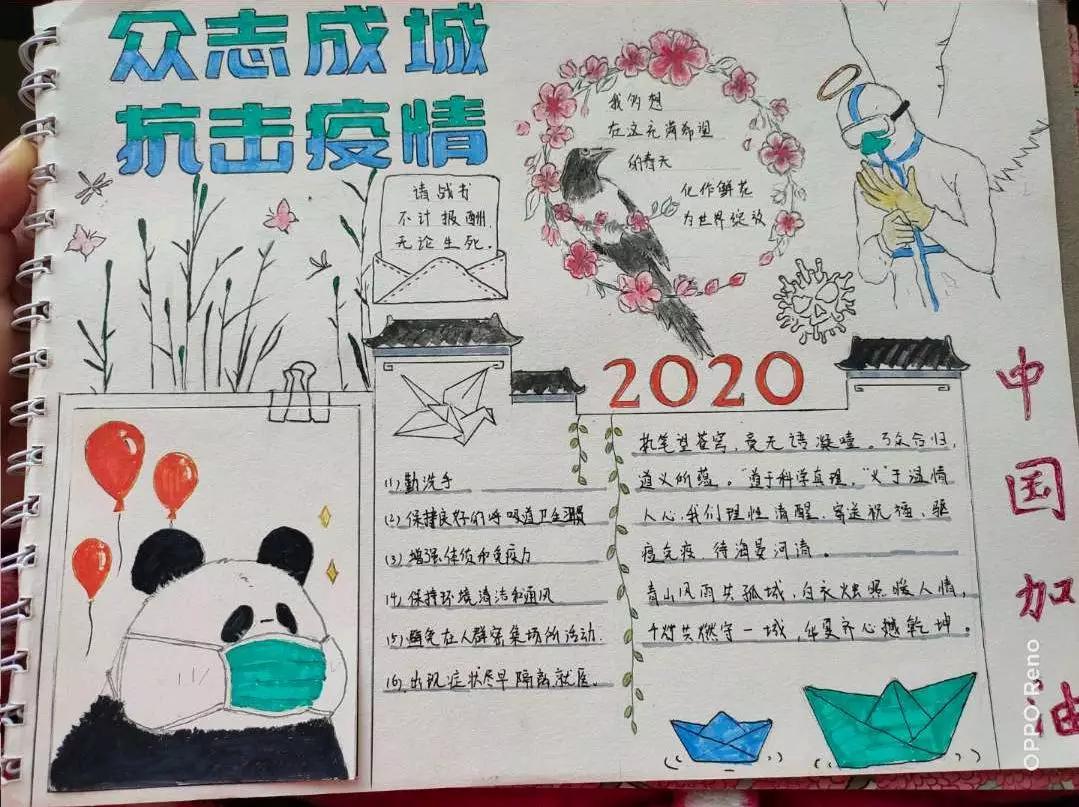 众志成城
抗击疫情
请战书
不计报酬,
无论生死.
我的想
在这充满希望
的春天
化作鲜花
为世界绽放
2020
中国加油
(1)勤洗手
(2)保持良好的呼吸道卫生习惯
(3)增强体质和免疫力
(4)保持环境清洁和通风
(5)避免在人群密集场所活动.
(6)出现症状尽早隔离就医。
执笔望苍穹,竟无语凝噎。万众合归,
道义所蕴。"道于科学真理,"义"于温情
人心,我们理性清醒、寄送祝福、驱
疫克疫,待海晏河清。
青山风雨共孤城,白衣烛照暖人情,
千灯共燃守一城,华夏齐心撼乾坤。
OPPO Reno